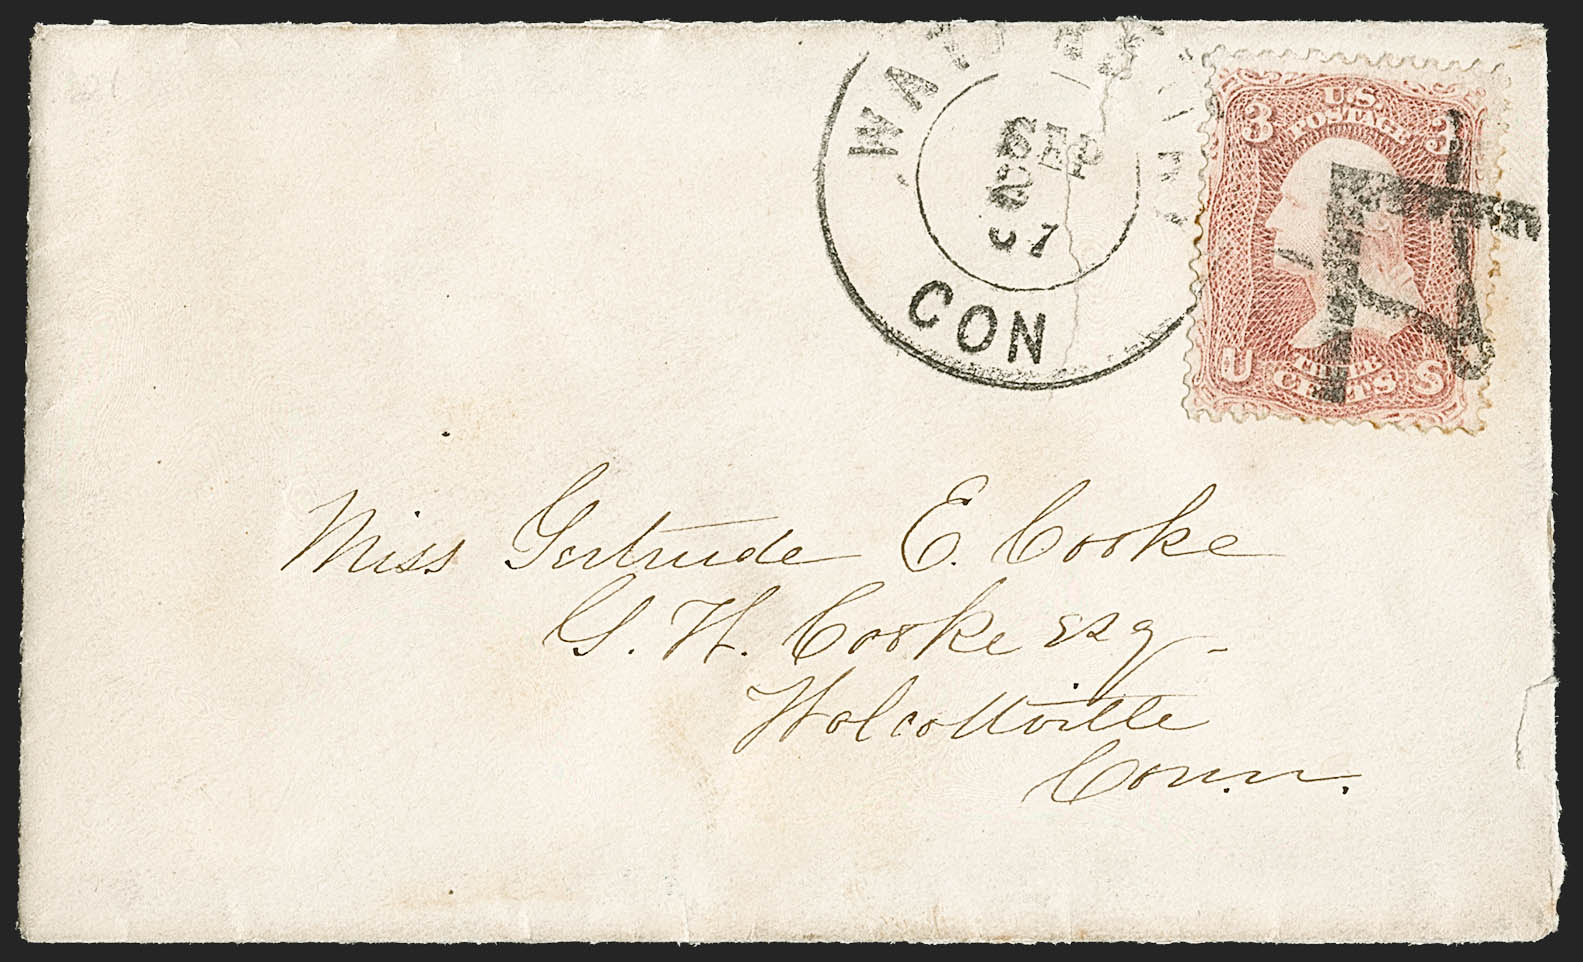 CON
SEP
2
67
U.S.
POSTAGE
3 3
U THREE S
CENTS
Miss Gertrude E. Cooke
G. H. Cooke Esq -
Wolcottville
Conn.